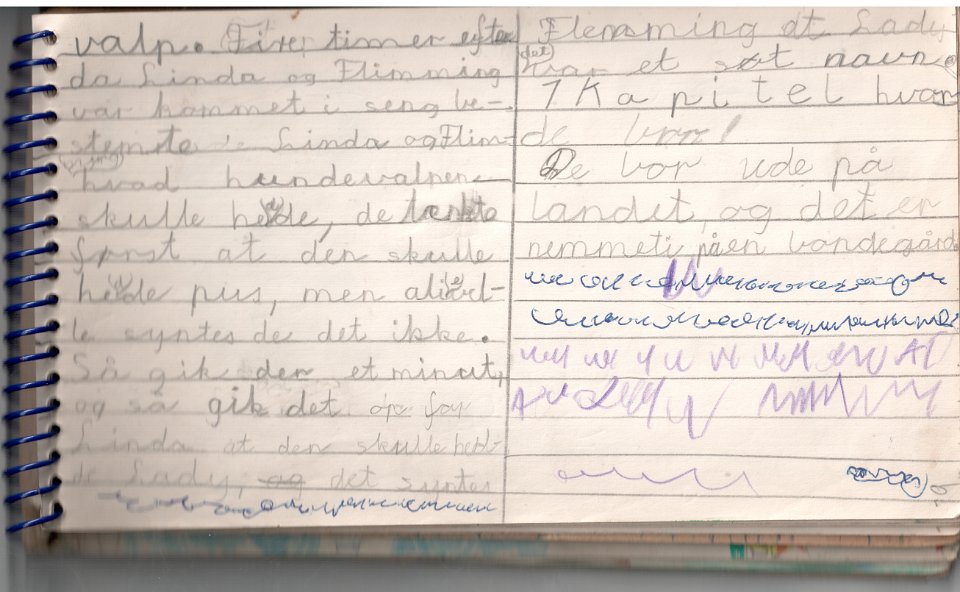 valp. Firer timer efter
da Linda og Flimming
var kommet i seng be-
stemte de Linda og Flim-
(ming)
hvad hundevalpen
skulle hedde, de tænkte
først at den skulle
hedde pus, men
le syntes de det ikke.
Så gik der et minut,
og så gik det op for
Linda at den skulle hed-
de Lady, og det syntes
Flemming at Lady
(det)
var et søt navn.
7 Kapitel hvor
de bor!
De bor ude på
landet, og det er
nemmeti på en bondegård